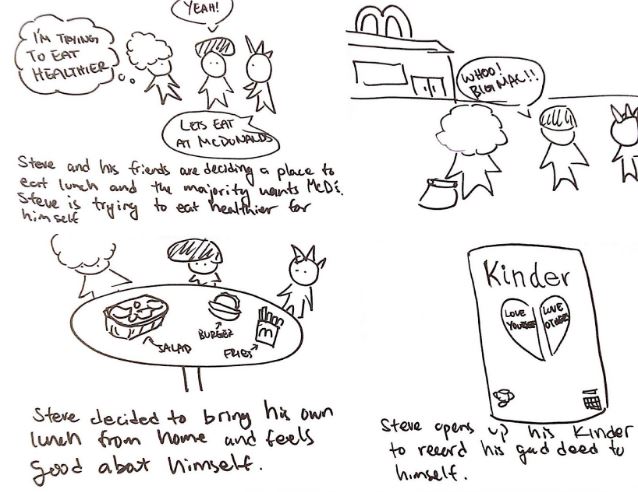 YEAH!
I'M TRYING
TO EAT
HEALTHIER
LETS EAT
AT MCDONALDS
Steve and his friends are deciding a place to
eat lunch and the majority wants McD's.
Steve is trying to eat healthier for
himself
WHOO!
BIG MAC!!
SALAD
BURGER
FRIES
m
Steve decided to bring his own
lunch from home and feels
good about himself.
Kinder
LOVE
YOURSELF
LOVE
OTHERS
Steve opens up his Kinder
to record his good deed to
himself.